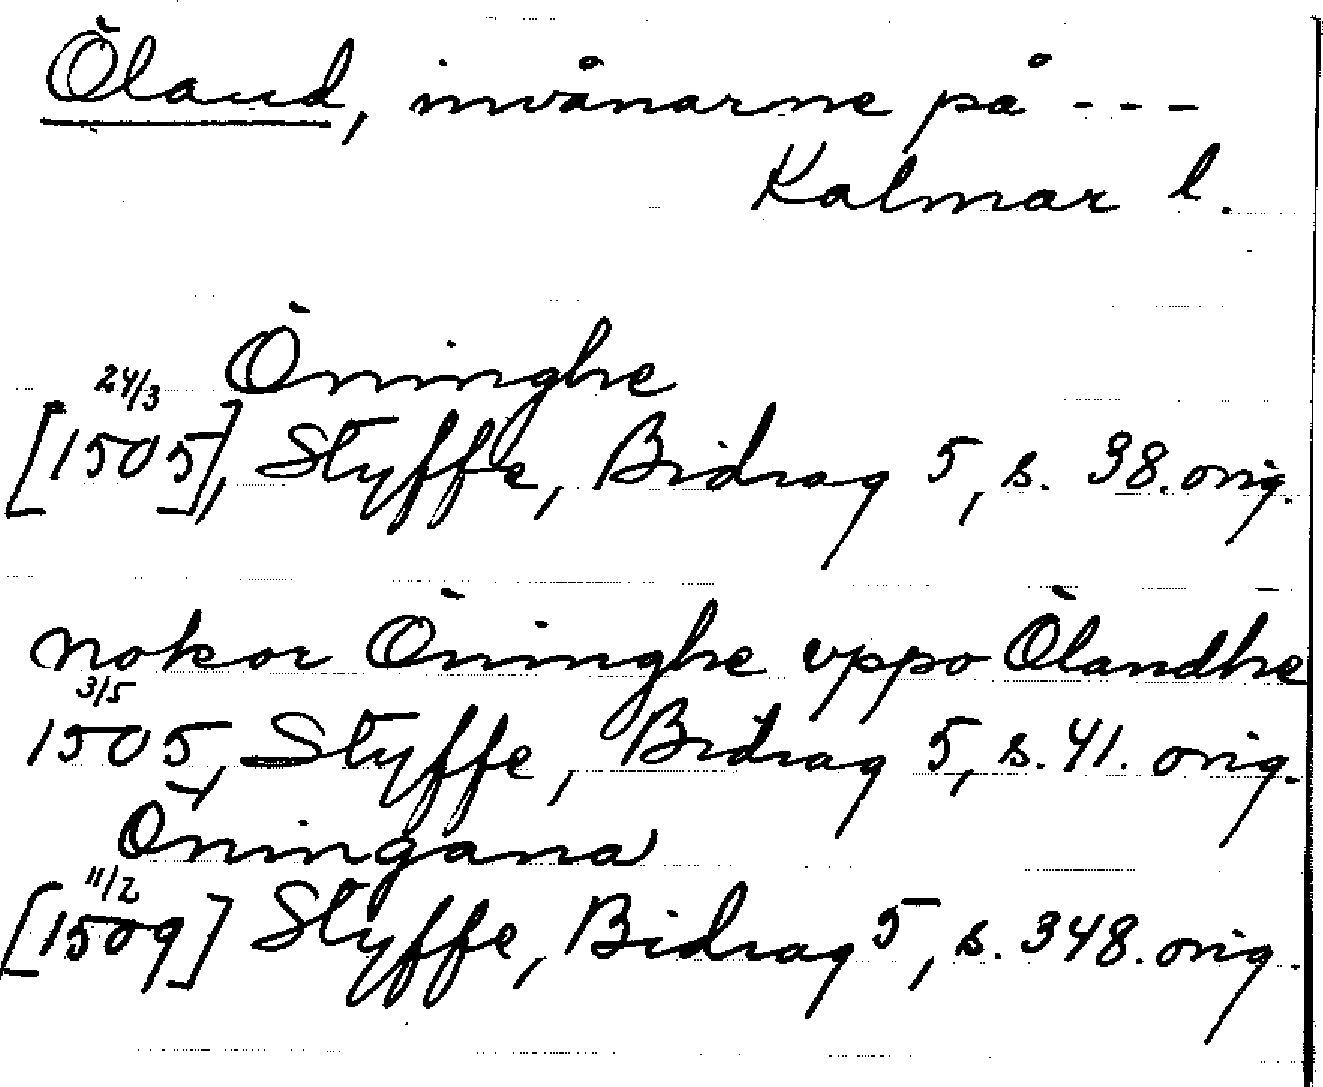 Öland, invånarne på ---
Kalmar l.
Öninghe
24/3
[1505], Styffe, Bidrag 5, s. 38. orig.
nokor Öninghe vppo Ölandhe
3/5
1505, Styffe, Bidrag 5, s. 41. orig.
Öningana
11/2
[1509] Styffe, Bidrag 5, s. 348. orig.